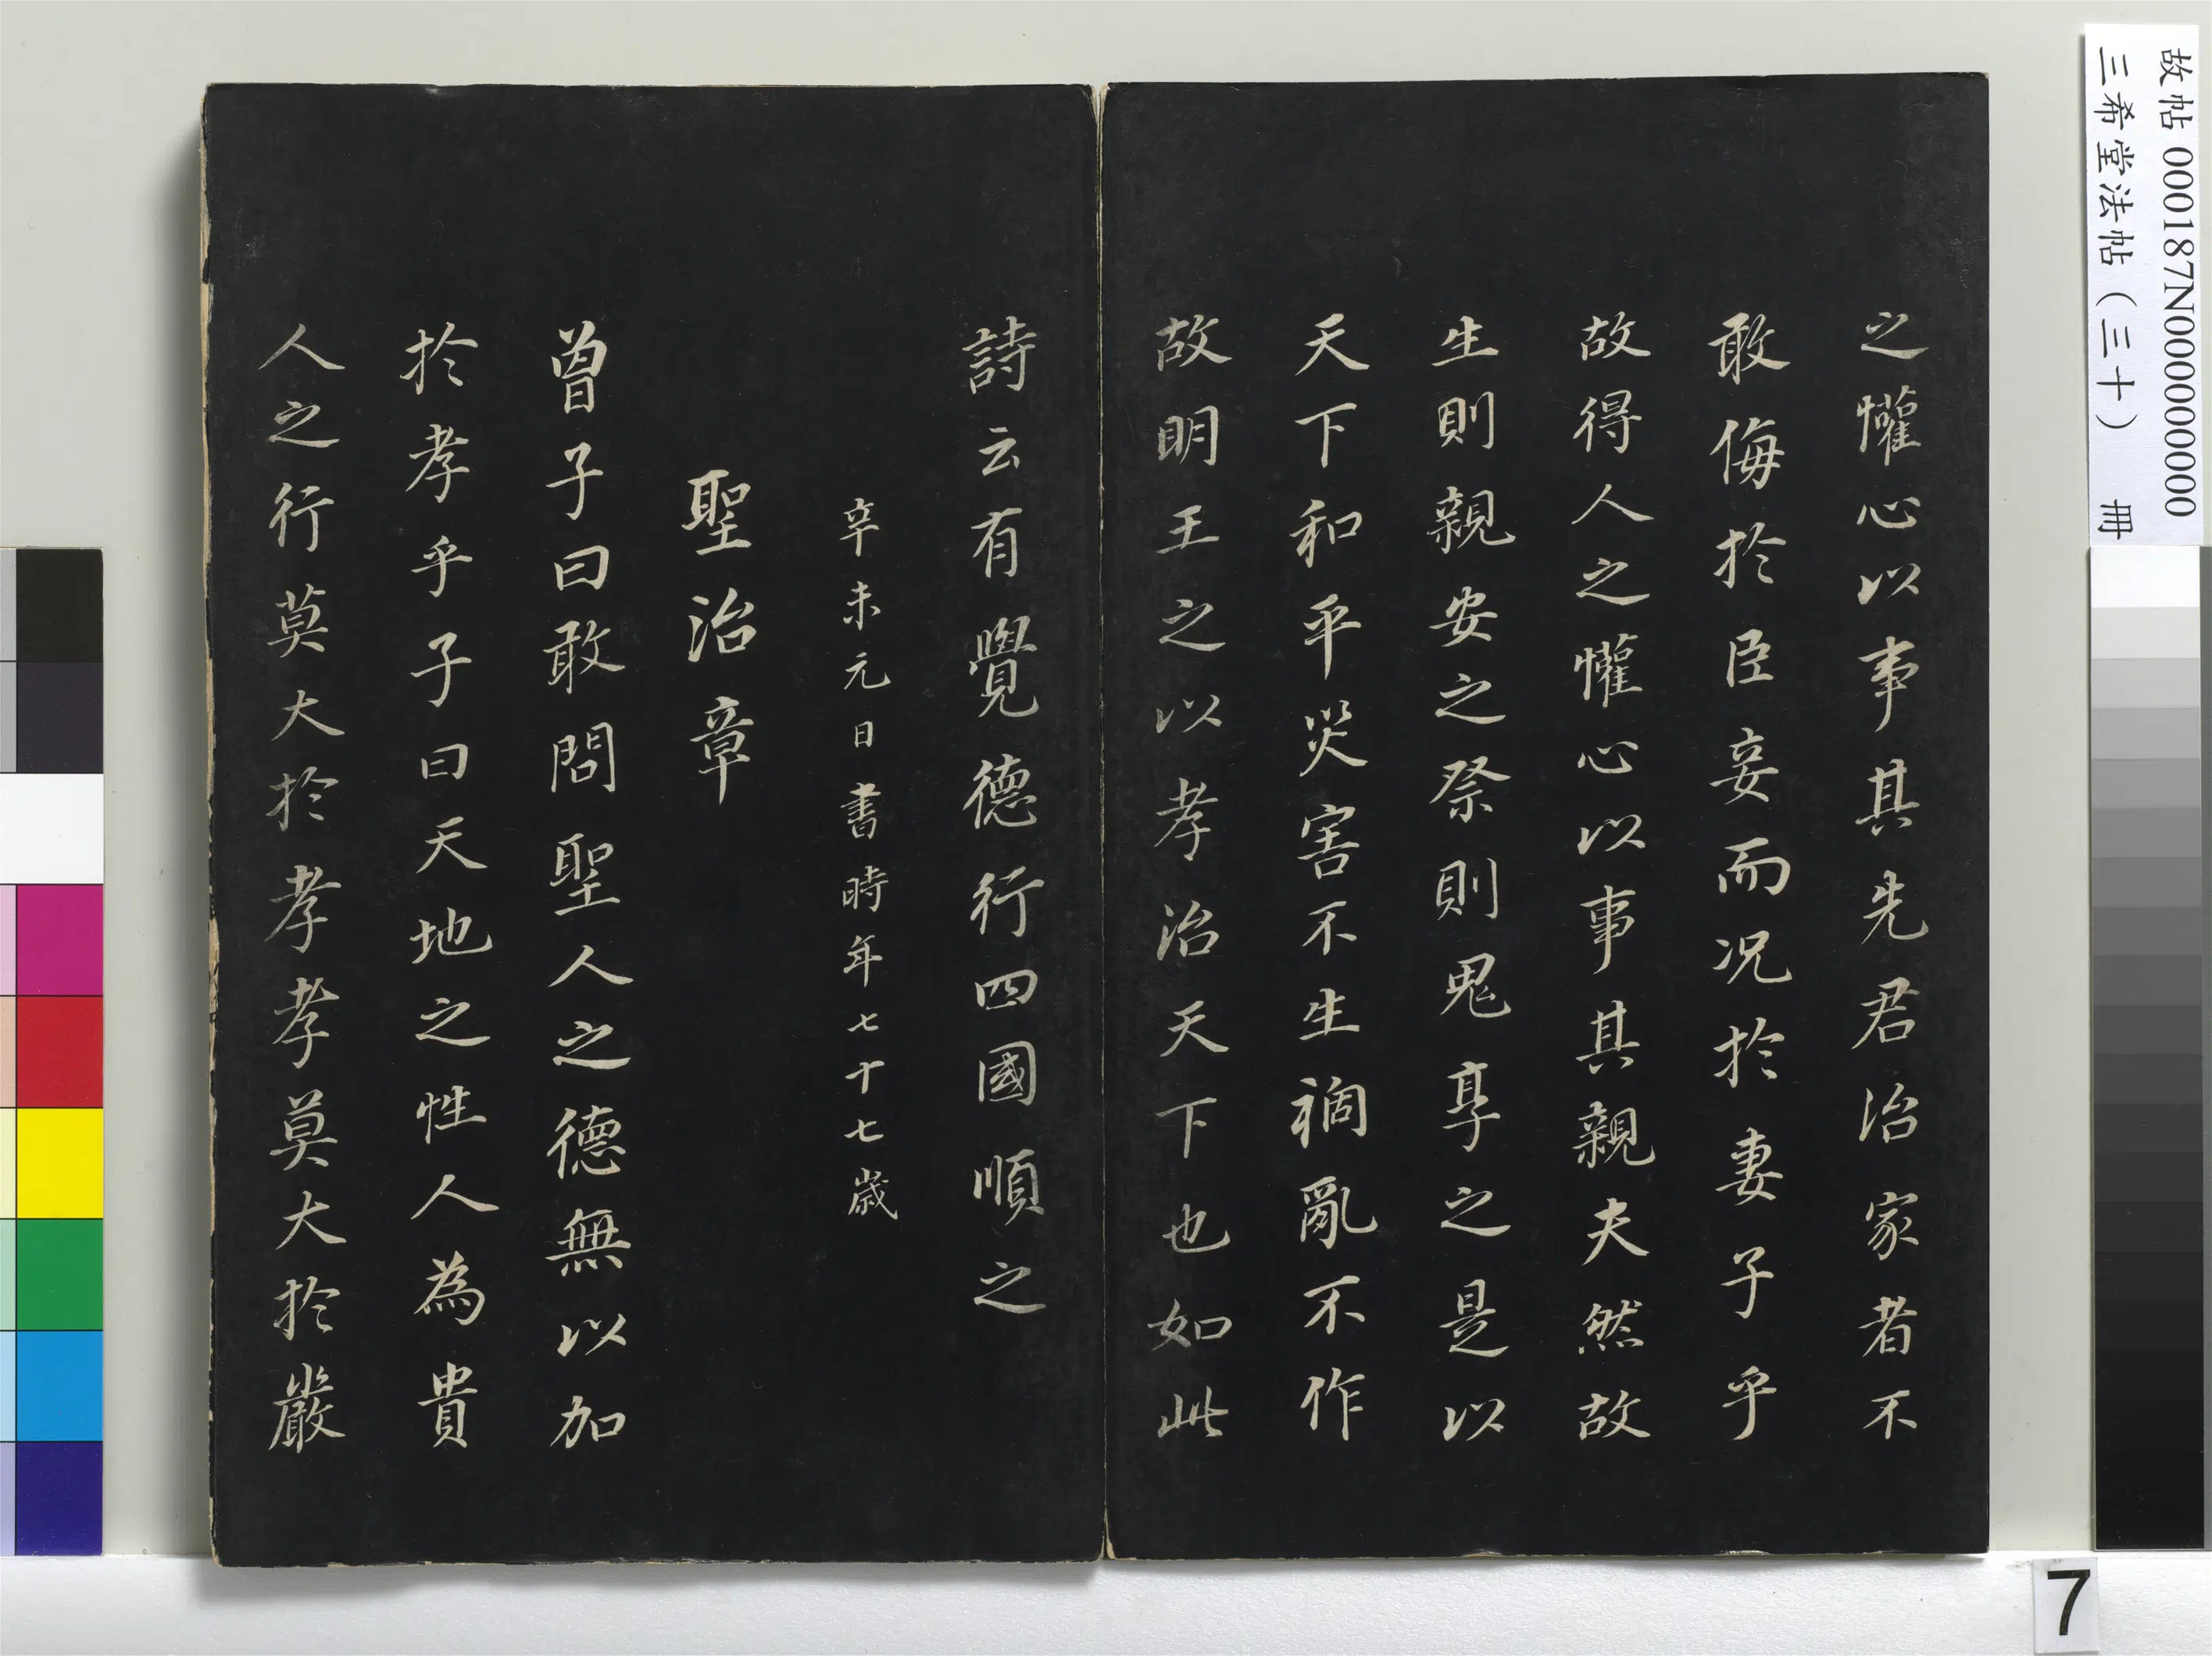 之懽心以事其先君治家者不
敢侮於臣妾而况於妻子乎
故得人之懽心以事其親夫然故
生則親安之祭則鬼享之是以
天下和平災害不生禍亂不作
故明王之以孝治天下也如此
詩云有覺德行四國順之
辛未元日書時年七十七歲
聖治章
曾子曰敢問聖人之德無以加
於孝乎子曰天地之性人為貴
人之行莫大於孝孝莫大於嚴
故帖 000187N000000000
三希堂法帖（三十） 冊
7